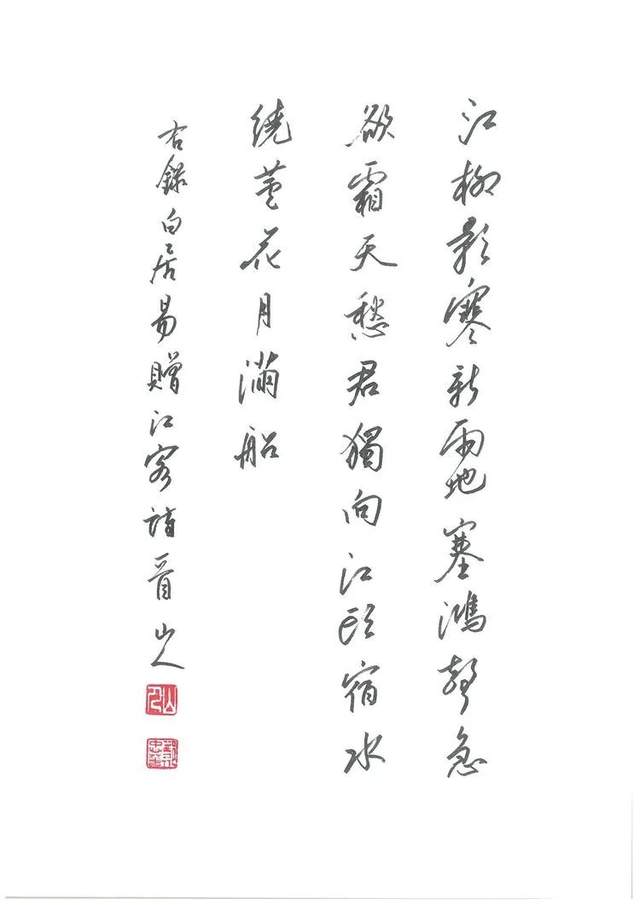 江柳影寒新雨地塞鴻聲急
欲霜天愁君獨向江頭宿水
繞蘆花月滿船
右錄白居易贈江客詩山人
山人